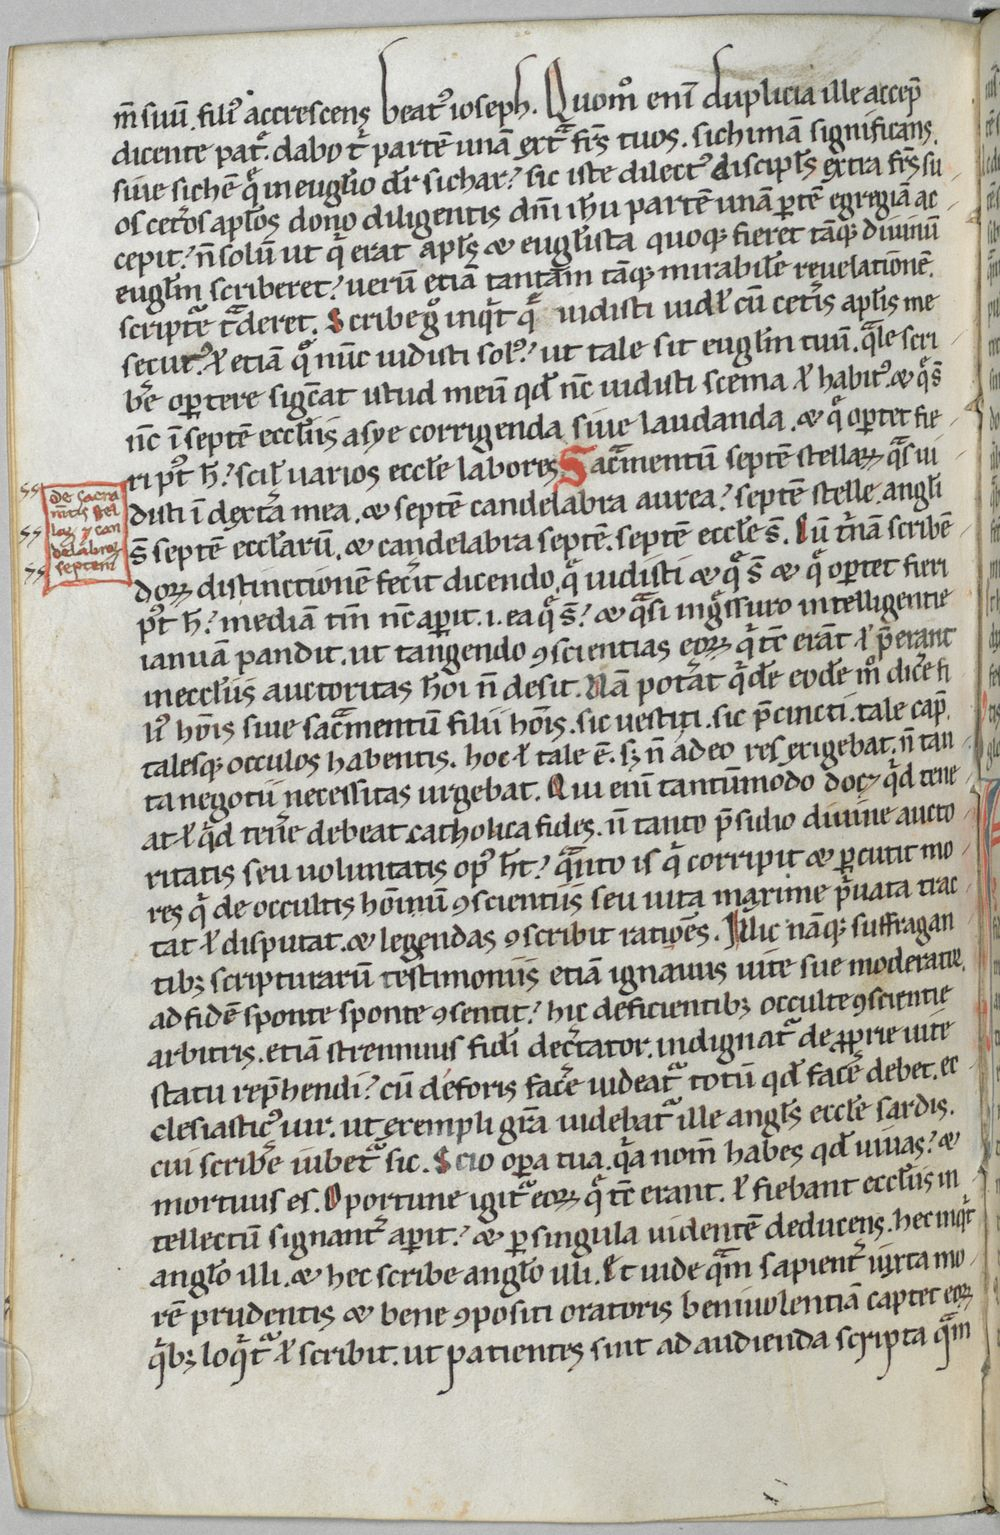 m̅ suū. filiꝰ accrescens beatꝰ ioseph. Quom̊ eni̅ duplicia ille accep̅
dicente patͥ. dabo t̓ partē unā ext̄ fr̅s tuos. sichimā significans.
siue sichē qͦ in eugl̓io dr̅ sichar? sic iste dilectꝰ discipl̓s extra fr̅s su
os cet̓os apl̓os dono diligentis dn̅i ih̅u partē unā ꝑtē egregiā ac
cepit? n̅ solū ut qͥ erat apl̓s ⁊ eugl̓ista quoqꝫ fieret tāqꝫ diuinū
eugl̓m scriberet? uerū etiā tantam tāqꝫ mirabil̓e reuelationē.
scriptͤ tͣderet. Scribe gͦ inqͥt qͤ uidisti uidel̓ cū cet̓is apl̓is me
secutꝰ. ł etiā qͦ nūc uidisti solꝰ? ut tale sit eugl̓m tuū. qͣle scri
b̓e oꝑtere sigͨat istud meū qd̓ nc̅ uidisti scema ł habitꝰ. ⁊ qͤ s̅
nc̅ ī septē eccl̓iis asye corrigenda siue laudanda. ⁊ qͤ oꝑtet fie
ri pꝰt h̅? scil̓ uarios eccl̓e labores Sacͣmentū septē stellaꝝ qͣs ui
disti ī dextͣ mea. ⁊ septē candelabra aurea? septē stelle. angl̓i
s̅ septē eccl̓arū. ⁊ candelabra septē. septē eccl̓e s̅. Cū t̓nā scribē
doꝝ distinctionē fec̓it dicendo. qͤ uidisti ⁊ qͤ s̅ ⁊ qͤ oꝑtet fieri
pꝰt h̅? mediā tm̅ nc̅ aꝑit. i. ea qͤ s̅? ⁊ qͣsi ingͤssuro intelligentie
ianuā pandit. ut tangendo ꝯscientias eoꝝ qͥ tc̅ erāt ł p̅erant
in eccl̓iis auctoritas h̅oi n̅ desit. Nā pot̓at qͥde eode m̊ dic̓e fi
liꝰ ho̅is siue sacͣmentū filii ho̅is. sic uestiti. sic p̅cincti. tale cap̅.
talesqꝫ occulos habentis. hoc ł tale ē. sꝫ n̅ adeo res exigebat. n̅ tan
ta negotii necessitas urgebat. Qui enī tantūmodo docꝫ qͥd tene
at ł qͥd ten̓e debeat catholica fides. n̅ tanto p̅sidio diuine aucto
ritatis seu uoluntatis opꝰ h̅t? qͣnto is qͥ corripit ⁊ ꝑcutit mo
res qͥ de occultis ho̅inū ꝯscientiis seu uita maxime pͥuata trac
tat ł disputat. ⁊ legendas ꝯscribit ratioēs. Illic nāqꝫ suffragan
tibꝫ scripturarū testimoniis etiā ignauus uite sue moderator.
ad fidē sponte sponte ꝯsentit? hic deficientibꝫ occulte ꝯscientie
arbitris. etiā strennuus fidi dec̓tator. indignatͬ de ꝓprie uite
statu rep̅hendi? cū deforis fac̓e uideatͬ totū qd̓ fac̓e debet. ec
clesiasticꝰ uir. ut exempli gr̅a uidebatͬ ille angl̓s eccl̓e sardis.
cui scrib̓e iubetͬ sic. Scio oꝑa tua. qͥa nom̅ habes qd̓ uiuas? ⁊
mortuus es. Oportune igitͬ eoꝝ qͤ tc̅ erant. ł fiebant eccl̓iis in
tellectū signant̓ aꝑit? ⁊ ꝑ singula uidentē deducens. hec inqͥt
angl̓o illi. ⁊ hec scribe angl̓o illi. Et uide qͣm sapient̓ iuxta mo
rē prudentis ⁊ bene ꝯpositi oratoris beniuolentiā captet eoꝝ
qͥbꝫ loqͥtͬ ł scribit. ut patientes sint ad audienda scripta qͣm
de sacra
m̅tis stel
laꝝ ⁊ can
delabroꝝ
septem